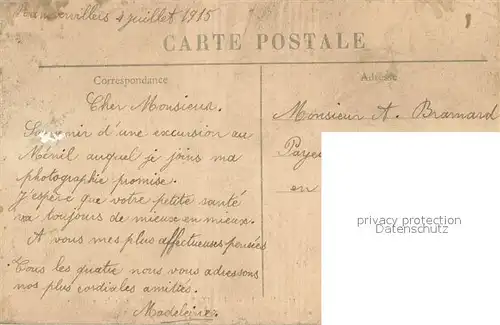 4 juillet 1915
1
CARTE POSTALE
Correspondance
Adresse
Cher Monsieur.
Souvenir d'une excursion au
Ménil auquel je joins ma
photographie promise.
J'espère que votre petite santé
va toujours de mieux en mieux.
A vous mes plus affectueuses pensées
Tous les quatre nous vous adressons
nos plus cordiales amitiés.
Madeleine.
Monsieur A. Bramard
Paye
en
privacy protection
Datenschutz